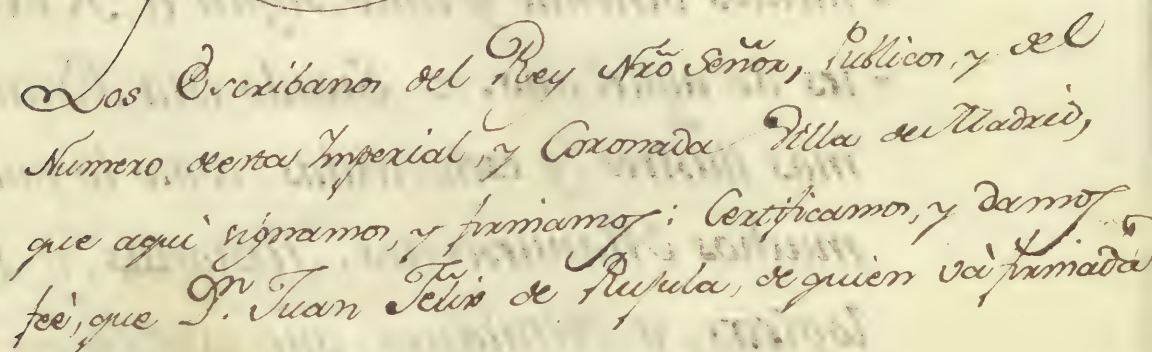 Los Escribanos del Rey Nrõ Señor, Publicos, y del
Numero, desta Imperial, y Coronada Villa de Madrid,
que aqui signamos, y firmamos: Certificamos, y damos
feè, que Dn. Juan Felix de Rujula, de quien và firmada